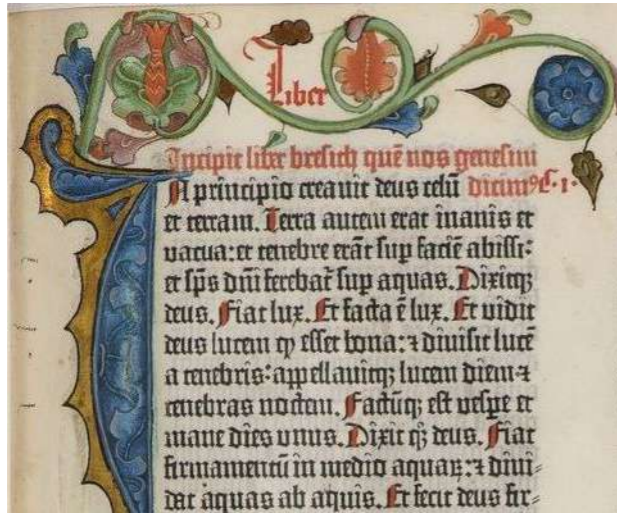 Liber
Incipit liber bresich quē nos genesim
N principio creavit deus celū dicim⁹. C. 1.
et terram. Terra autem erat inanis et
vacua: et tenebre erāt sup faciē abissi:
et sp̄s dn̄i ferebat᷑ sup aquas. Dixitqꝫ
deus. Fiat lux. Et facta ē lux. Et vidit
deus lucem ꝙ esset bona: ⁊ divisit lucē
a tenebris: appellavitqꝫ lucem diem ⁊
tenebras noctem. Factūqꝫ est vespe et
mane dies unus. Dixit qꝫ deus. Fiat
firmamentū in medio aquaꝝ: ⁊ divi⸗
dat aquas ab aquis. Et fecit deus fir⸗